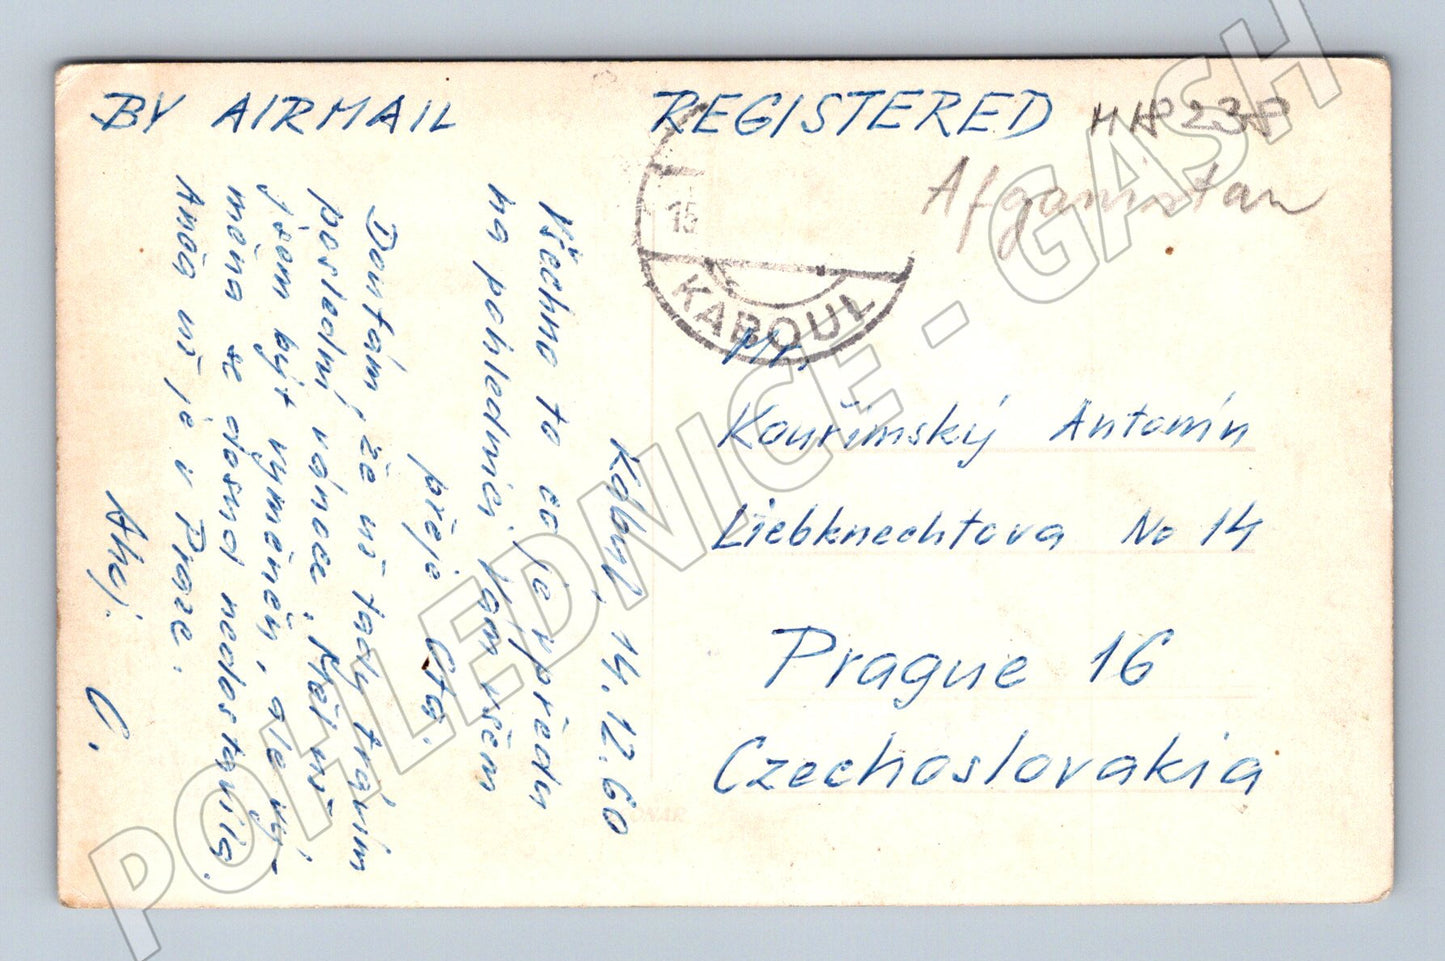 BY AIRMAIL
REGISTERED
238
Afganistan
15
KABOUL
Kábul, 14.12.60
Všechno to co je vpředu
na pohlednici Vám všem
přeje Cta.
Doufám, že už tady trávím
poslední vánoce. Měl už
jsem být vyměněn, ale vý-
měna se dosud nedostavila.
Anča už je v Praze.
Ahoj.
C.
Mr.
Kouřimský Antonín
Liebknechtova No 14
Prague 16
Czechoslovakia
POHLEDNICE - GASH